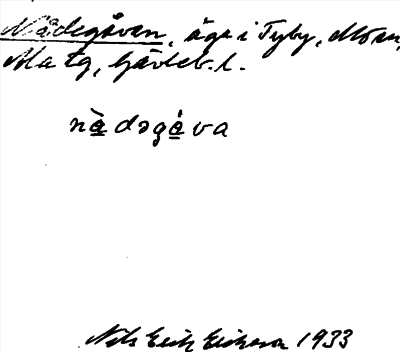 Nådegåvan, äga i Tyby, Moan,
Ma tg, Gävleb. l.
nå̀dəgǻva
Nils Erik Erikson 1933